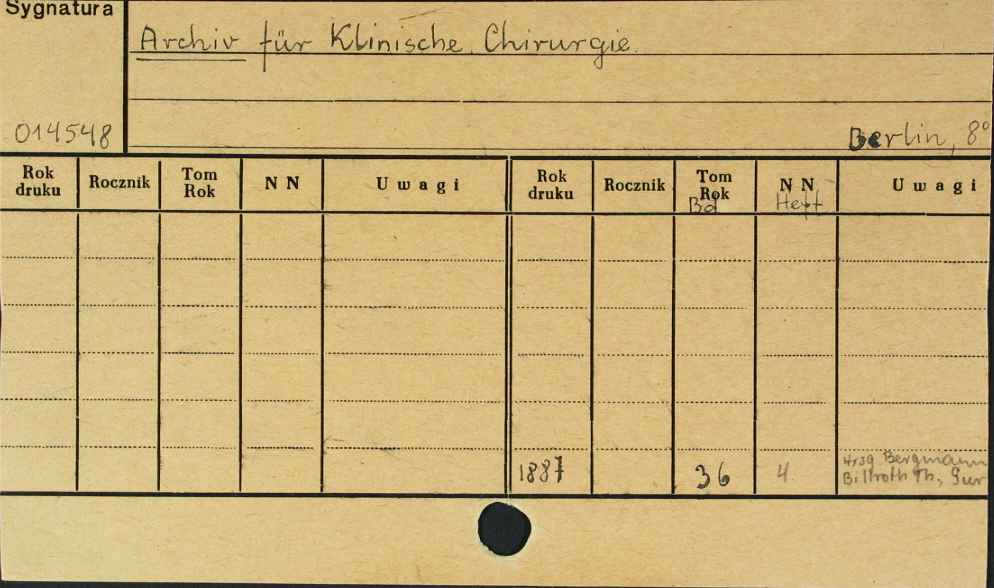 Sygnatura
Archiv für Klinische Chirurgie.
014548
Berlin, 8°
Rok druku Rocznik Tom Rok N N Uwagi Rok druku Rocznik Tom Rok N N Uwagi
Bd Heft
1887 36 4 Hrsg Bergmann
Billroth Th., Gur